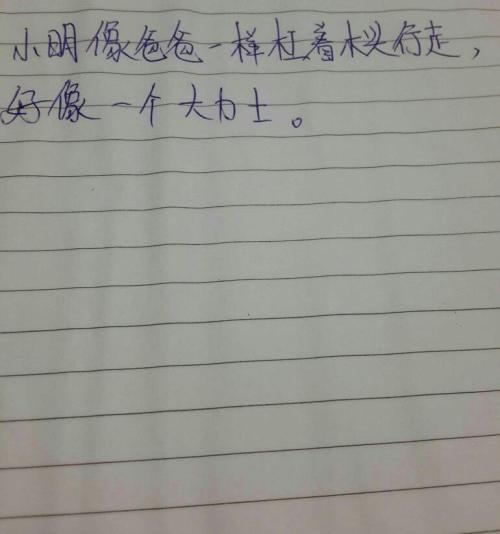 小明像爸爸一样杠着木头行走，
好像一个大力士。